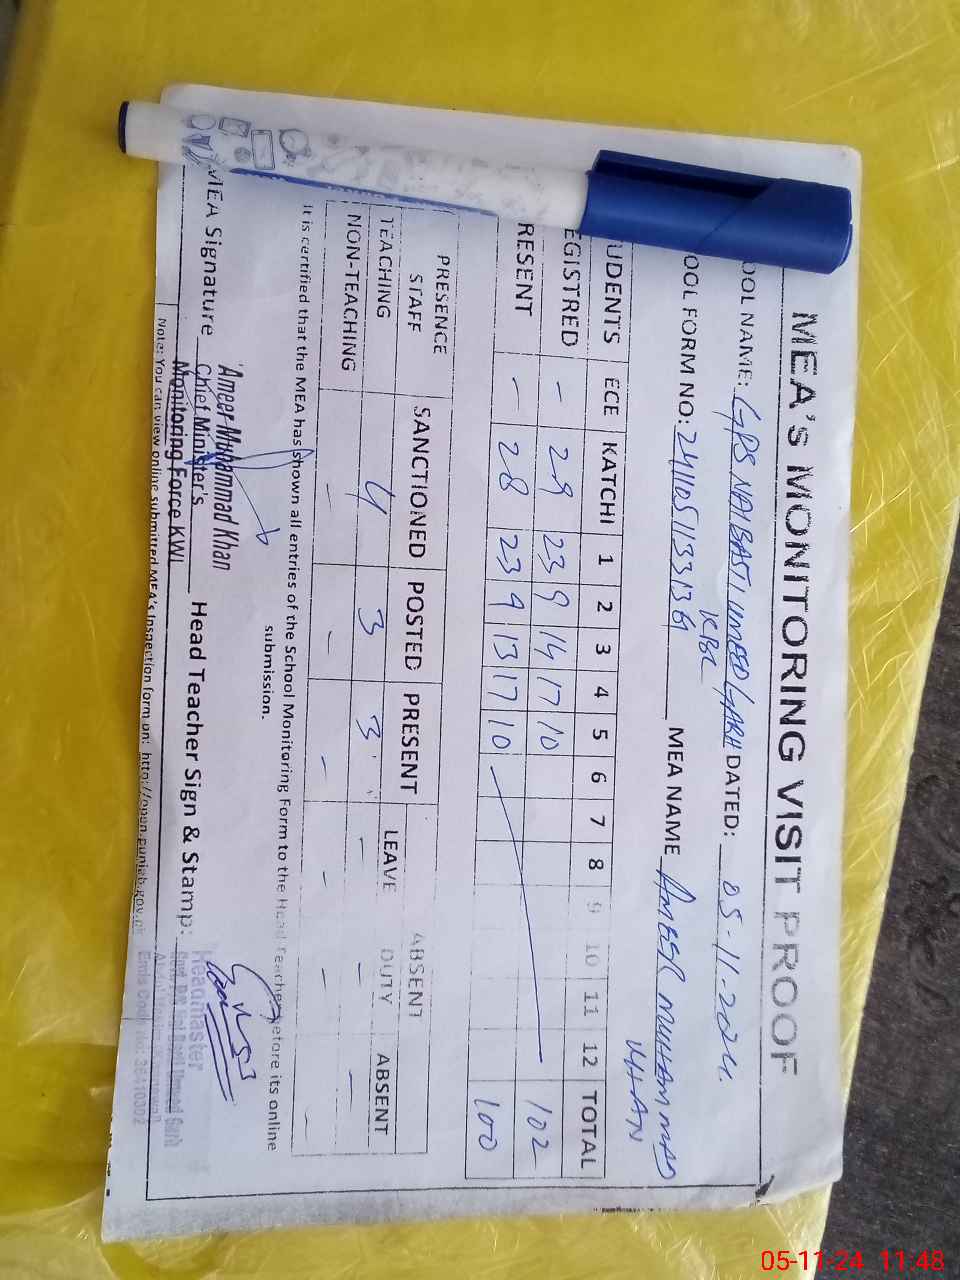 MEA's MONITORING VISIT PROOF
OOL NAME: GPS NAI BASTI UMEED GARH DATED: 05-11-2024
KBL
OOL FORM NO: MEA NAME AMEER MUHAMMAD
KHAN
UDENTS ECE KATCHI 1 2 3 4 5 6 7 8 9 10 11 12 TOTAL
EGISTRED - 29 23 9 14 17 10 102
RESENT - 28 23 9 13 17 10 100
PRESENCE STAFF SANCTIONED POSTED PRESENT ABSENT
LEAVE DUTY ABSENT
TEACHING 4 3 3 - - -
NON-TEACHING - - - - - -
It is certified that the MEA has shown all entries of the School Monitoring Form to the Head Teacher before its online
submission.
MEA Signature Head Teacher Sign & Stamp:
Ameer Muhammad Khan
Chief Minister's
Monitoring Force KWL
Headmaster
Note: You can view online submitted MEA's inspection form on: http://open.punjab.gov.pk
05-11-24 11:48